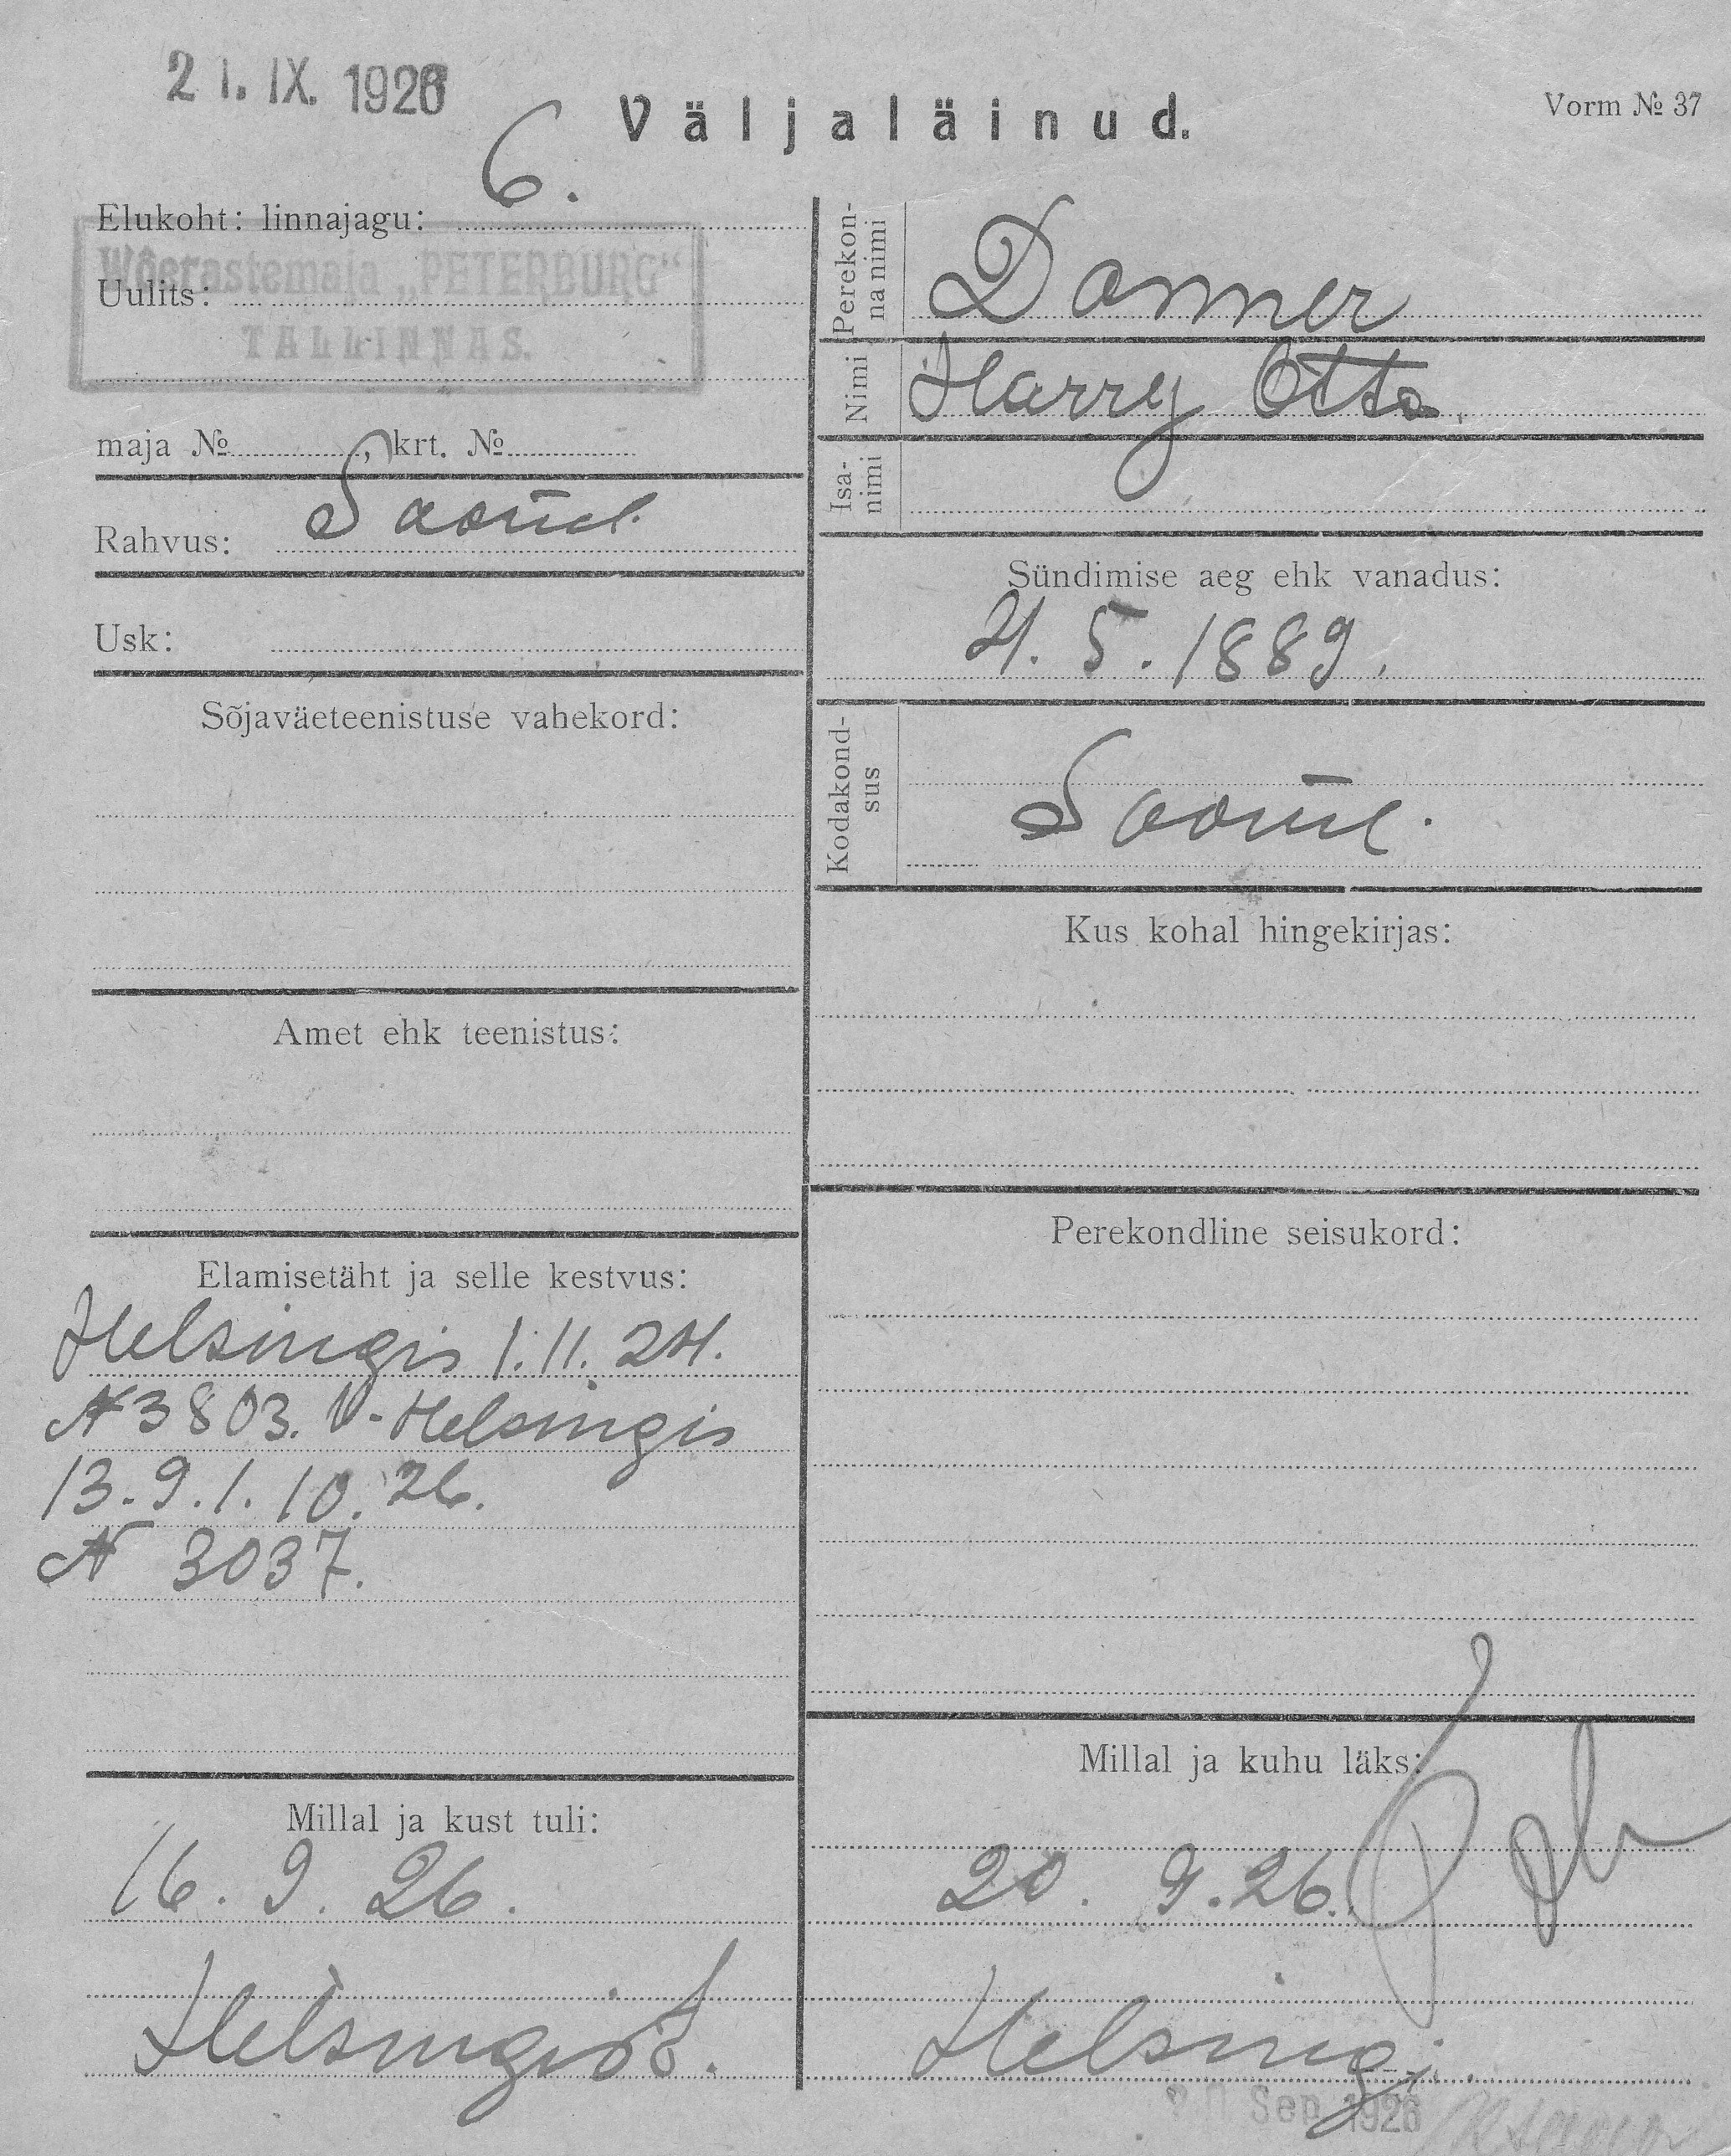 21. IX. 1926
Väljaläinud.
Vorm № 37
Elukoht: linnajagu: 6.
Wõerastemaja „PETERBURG“
Uulits:
TALLINNAS.
maja № , krt. №
Rahvus: Soome.
Usk:
Sõjaväeteenistuse vahekord:
Amet ehk teenistus:
Elamisetäht ja selle kestvus:
Helsingis 1.11.24.
N 3803. V-Helsingis
13.9.1.10.26.
N 3037.
Millal ja kust tuli:
16. 9. 26.
Helsingist.
Perekon-
na nimi
Donner
Nimi
Harry Otto.
Isa-
nimi
Sündimise aeg ehk vanadus:
21. 5. 1889.
Kodakond-
sus
Soome.
Kus kohal hingekirjas:
Perekondline seisukord:
Millal ja kuhu läks:
20. 9. 26.
Helsingi.
20 Sep 1926